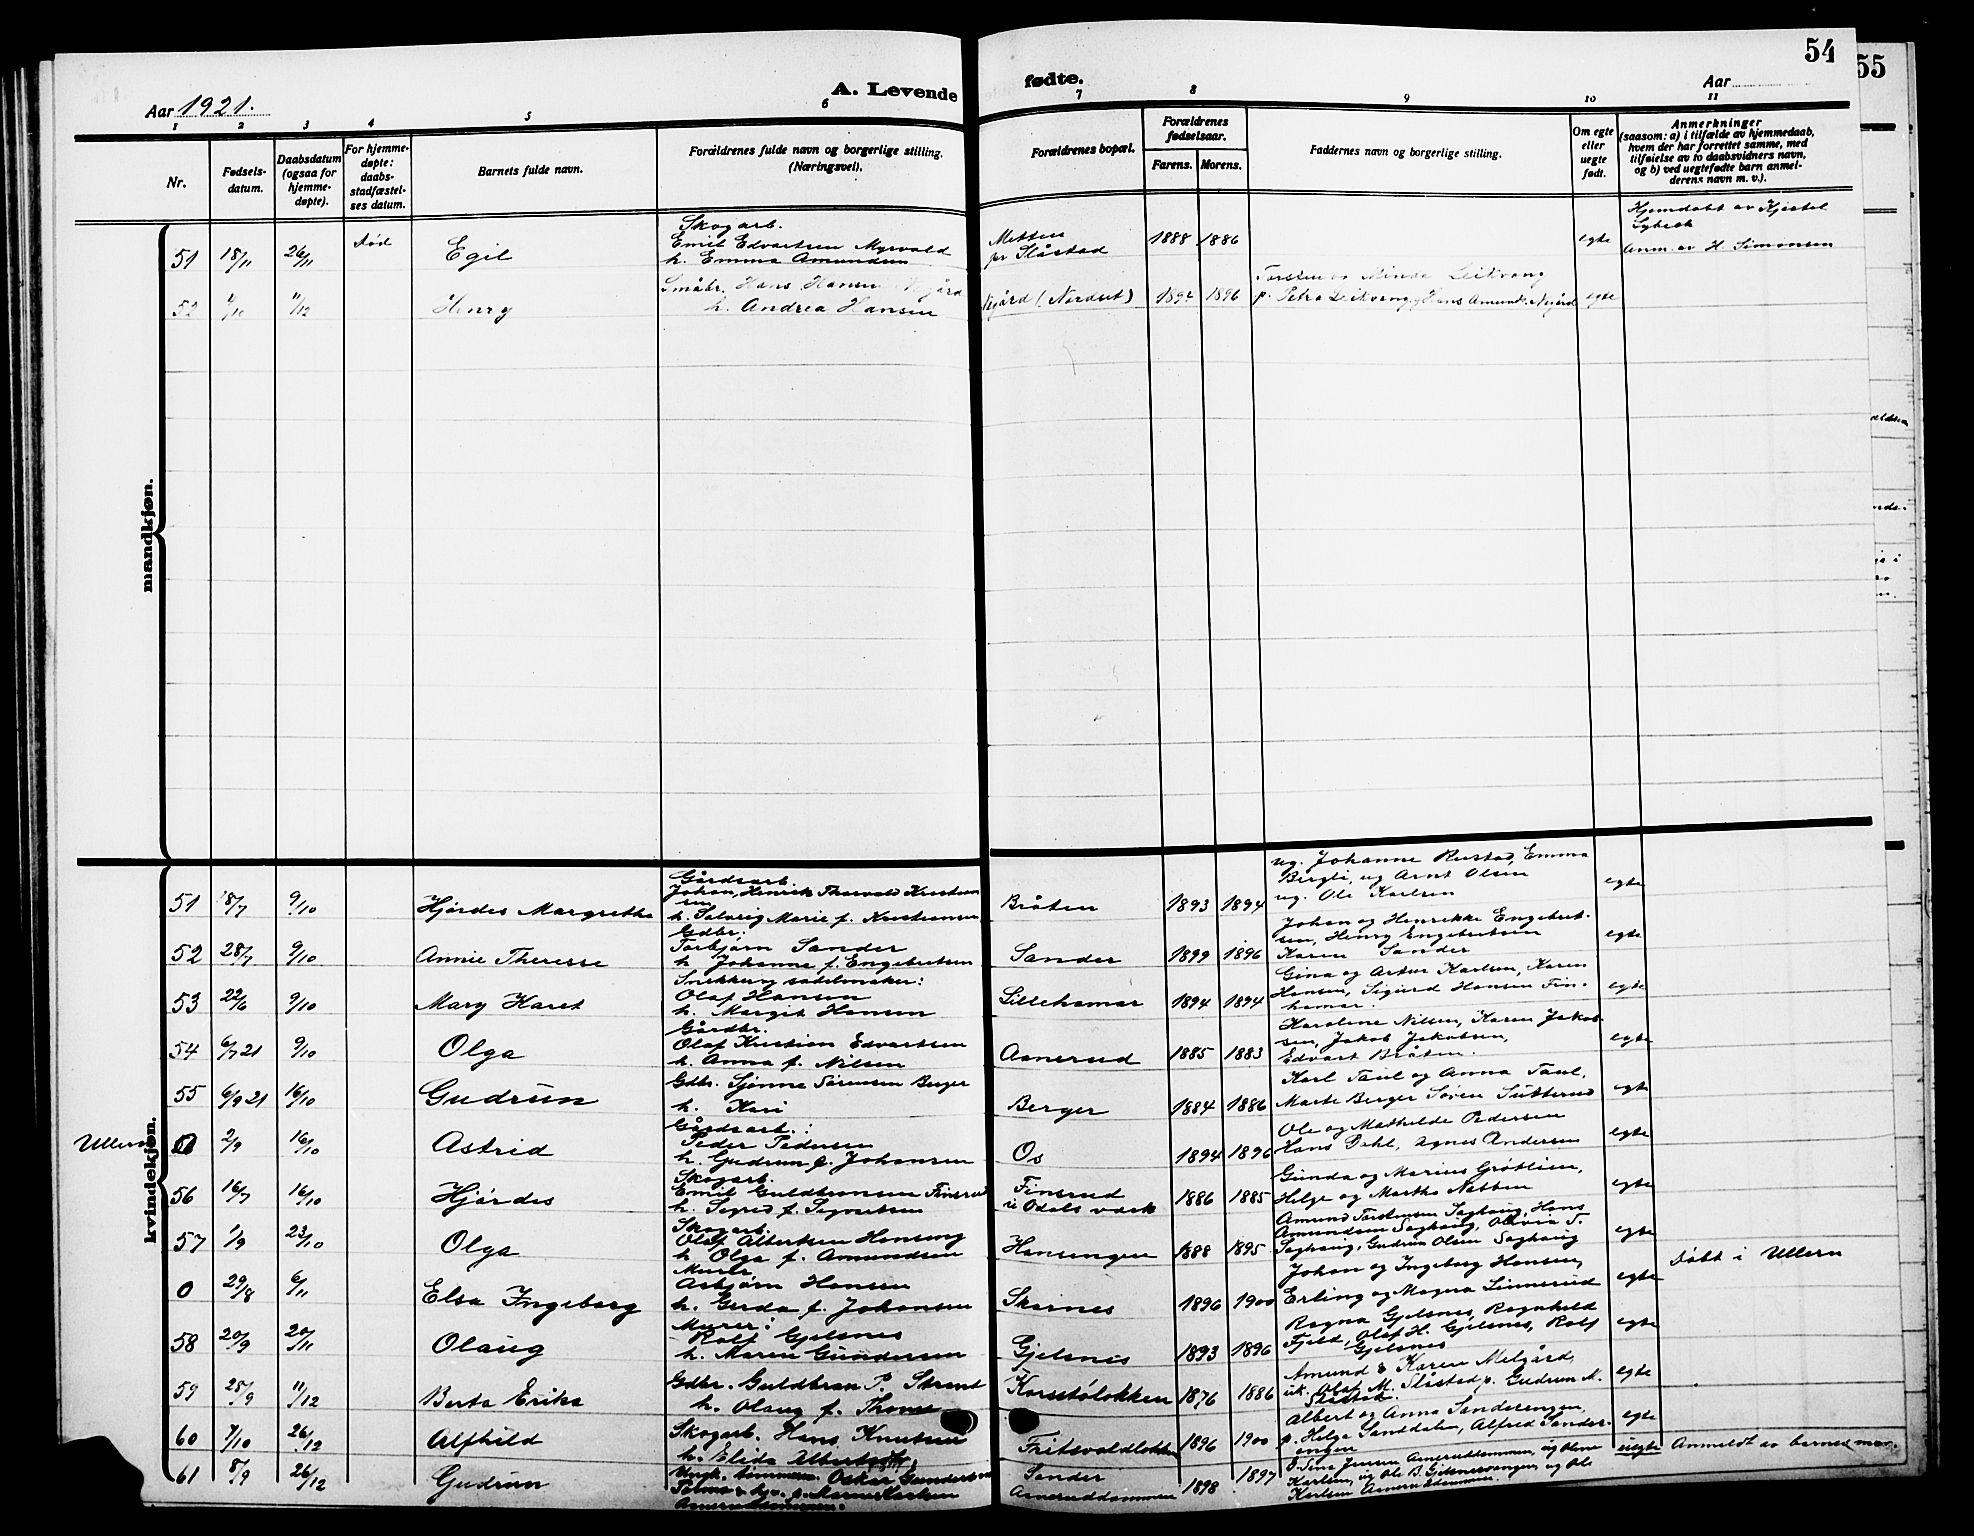 54
55
Aar 1921.
A. Levende
fødte.
Aar
1 2 3 4 5 6 7 8 9 10 11
Nr.
Fødsels-
datum.
Daabsdatum
(ogsaa for
hjemme-
døpte).
For hjemme-
døpte:
daabs-
stadfæstel-
ses datum.
Barnets fulde navn.
Forældrenes fulde navn og borgerlige stilling.
(Næringsvei).
Forældrenes bopæl.
Forældrenes
fødselsaar.
Farens. Morens.
Faddernes navn og borgerlige stilling.
Om egte
eller
uegte
født.
Anmerkninger
(saasom: a) i tilfælde av hjemmedaab,
hvem der har forrettet samme, med
tilføielse av to daabsvidners navn,
og b) ved uegtefødte barn anmel-
derens navn m. v.).
mandkjøn.
51 18/11 26/11 død Egil
Skogarb.
Emil Edvartsen Myrvald
h. Emma Amundsen
pr Slåstad 1888 1886 egte
Hjemdøbt av
Anm. av H. Simonsen
52 11/12 Henry
Småbr. Hans Hansen
h. Andrea Hansen
(Nordset) 1894 1896
Torsten og Minda Leitvang
p. Petra Leitvang, Hans Amund. egte
kvindekjøn.
51 18/7 9/10 Hjørdes Margrethe
Gårdsarb.
Johan, Henrik Thorvald Kristian
sen
h. Solveig Marie f. Kristiansen
Bråten 1893 1894
ug. Johanne Rustad, Emma
Bergli, ug Arnt Olsen
ug. Ole Karlsen egte
52 28/7 9/10 Annie Therese
Gdbr:
Torbjørn Sander
h. Johanne f. Engebretsen
Sander 1899 1896
Johan og Henrikke Engebret-
sen, Henry Engebretsen
Karen Sander egte
53 22/6 9/10 Mary Karet
Snekker og sadelmaker:
Olaf Hansen
h. Margit Hansen
Lillehamar 1894 1894
Gina og Artur Karlsen, Karen
Hansen, Sigurd Hansen Lin-
hamar. egte
54 6/7 21 9/10 Olga
Gårdbr.
Olaf Kristian Edvartsen
h. Anna f. Nilsen
Asnerud 1885 1883
Karoline Nilsen, Karen Jakob-
sen, Jakob Jakobsen,
Edvart Bråten. egte
55 6/9 21 16/10 Gudrun
Gdbr. Sjønne Sørensen Berger
h. Kari
Berger 1884 1886
Karl Taul og Anna Taul,
Marte Berger Søren Sutterud egte
Ullern 0 2/9 16/10 Astrid
Gårdsarb.:
Peder Pedersen
h. Gudrun f. Johansen
Os 1894 1896
Ole og Mathilde Pedersen
Hans Dahl, Agnes Andersen egte
56 16/7 16/10 Hjørdes
Skogarb.
Emil Guldbransen Finsrud
h. Sigred f. Sigvartsen
Finsrud
i Odals værk 1886 1885
Gunda og Marius Grøtlien,
Helge og Martha Nabben egte
57 1/9 23/10 Olga
Skogarb.
Olaf Albertsen Honsing
h. Olga f. Amundsen
Honsingen 1888 1895
Amund Torstensen Saghaug, Hans
Amundsen Saghaug, Olivia T.
Saghaug, Gudrun Olsen Saghaug egte
0 29/8 6/11 Elsa Ingeborg
Murer
Asbjørn Hansen
h. Gerda f. Johansen
Skarnes 1896 1900
Johan og Ingeborg Hansen,
Erling og Magna Linnerud egte
Døbt i Ullern
58 20/9 20/11 Olaug
Murer:
Rolf Gjelsnes
h. Maren Gundersen
Gjelsnes 1893 1896
Ragna Gjelsnes, Ragnhild
Fjeld, Olaf H. Gjelsnes, Rolf
Gjelsnes egte
59 25/9 11/12 Berta Erika
Gdbr. Guldbran P. Strand
h. Olaug f. Thoner
Korsstølokken 1876 1886
Amund & Karen Melgård,
uk. Olaf M. Slåstad p. Gudrun M.
Slåstad. egte
60 7/10 26/12 Alfhild
Skogarb. Hans Knutsen
h. Elida Albertsen
Fritsvoldlokken 1896 1900
Albert og Anna Sanderengen,
p. Helga Sanddalen, Alfred Sander-
engen egte
61 8/9 26/12 Gudrun
Ungk. tømmerm. Oskar Gundersen
Sander
Asneruddammen 1898 1897
Asneruddammen, ug Oline
Karlsen, ug Ole B. Gjelsnesvangen, ug Ole
Karlsen Asneruddammen. uegte
Anmeldt av barnets mor.